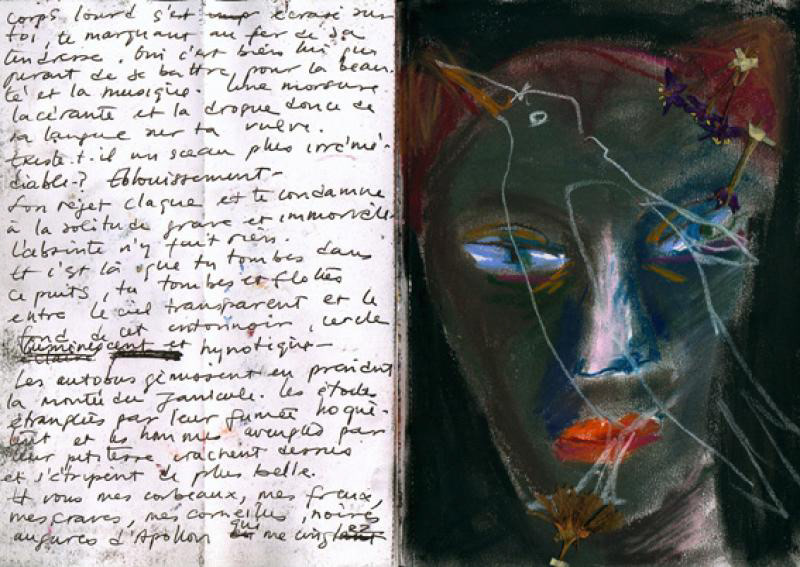 corps lourd s'est écrasé sur
toi, te marquant au fer de sa
tendresse. Oui c'est bien lui qui
jurant de se battre pour la beau-
té et la musique. Une morsure
lacérante et la drogue douce de
sa langue sur ta vulve.
Existe-t-il un sceau plus irrémé-
diable? Eblouissement-
Son rejet claque et te condamne
à la solitude grave et immorale
L'absinte n'y fait rien.
Et c'est là que tu tombes dans
ce puits, tu tombes et flottes
entre le ciel transparent et le
fond de cet entonnoir, cercle
luminescent et hypnotique-
Les autobus gémissent en prenant
la montée du Janicule. Les étoiles
étranglées par leur fumée hoquè-
tent et les hommes aveuglés par
leur pisterre crachent dessus
et s'étripent de plus belle.
Et vous mes corbeaux, mes freux,
mes craves, mes corneilles, noires
augures d'Apollon qui me cinglez